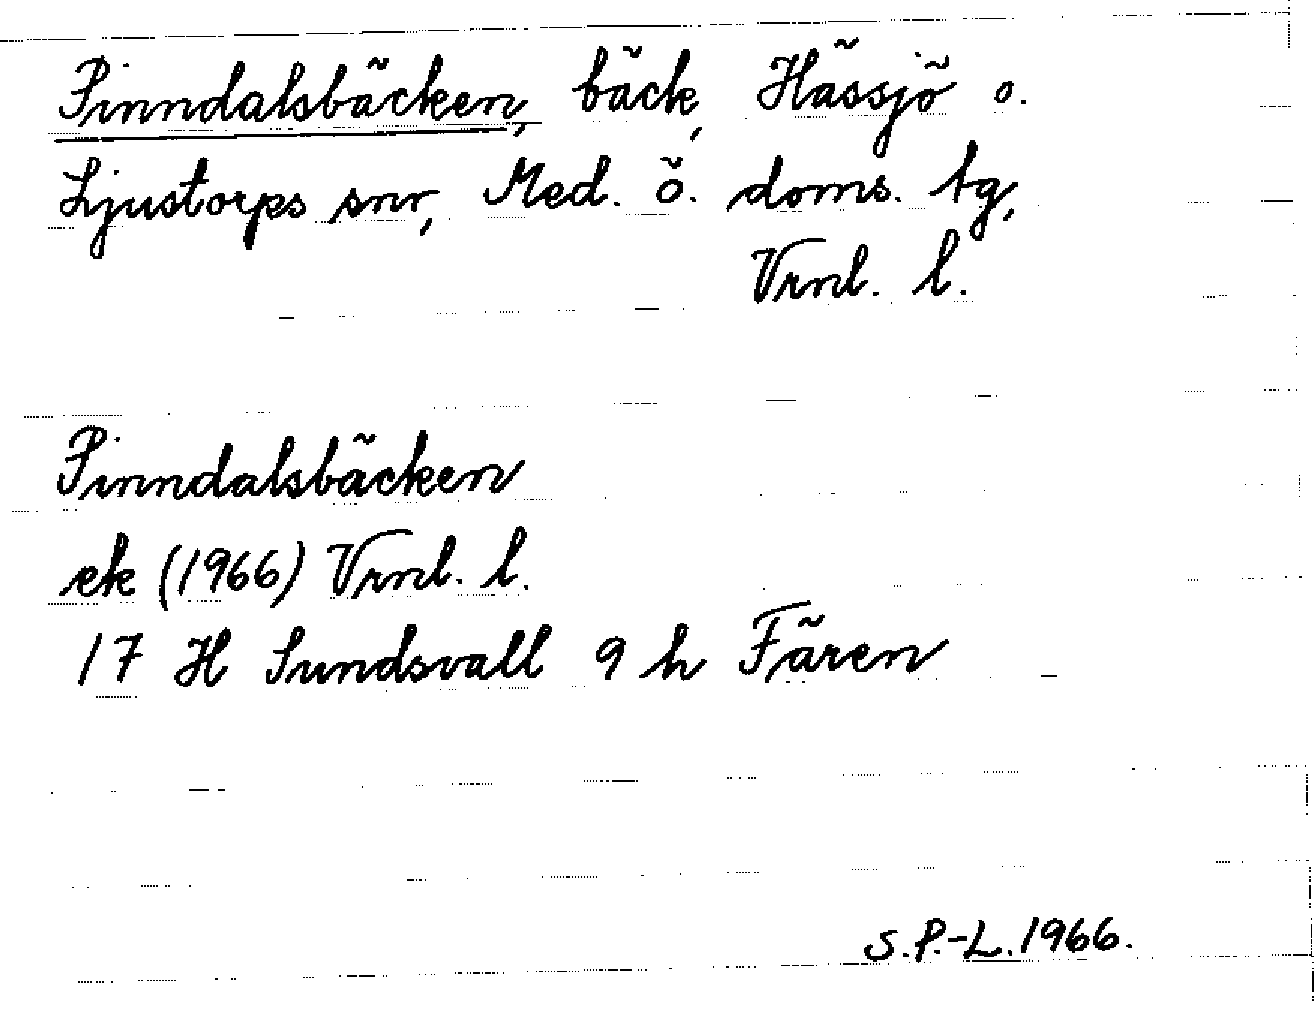 Pinndalsbäcken, bäck, Hässjö o.
Ljustorps snr, Med. ö. doms. tg,
Vrnl. l.
Pinndalsbäcken
ek (1966) Vrnl. l.
17 H Sundsvall 9 h Fären
S.P.-L. 1966.